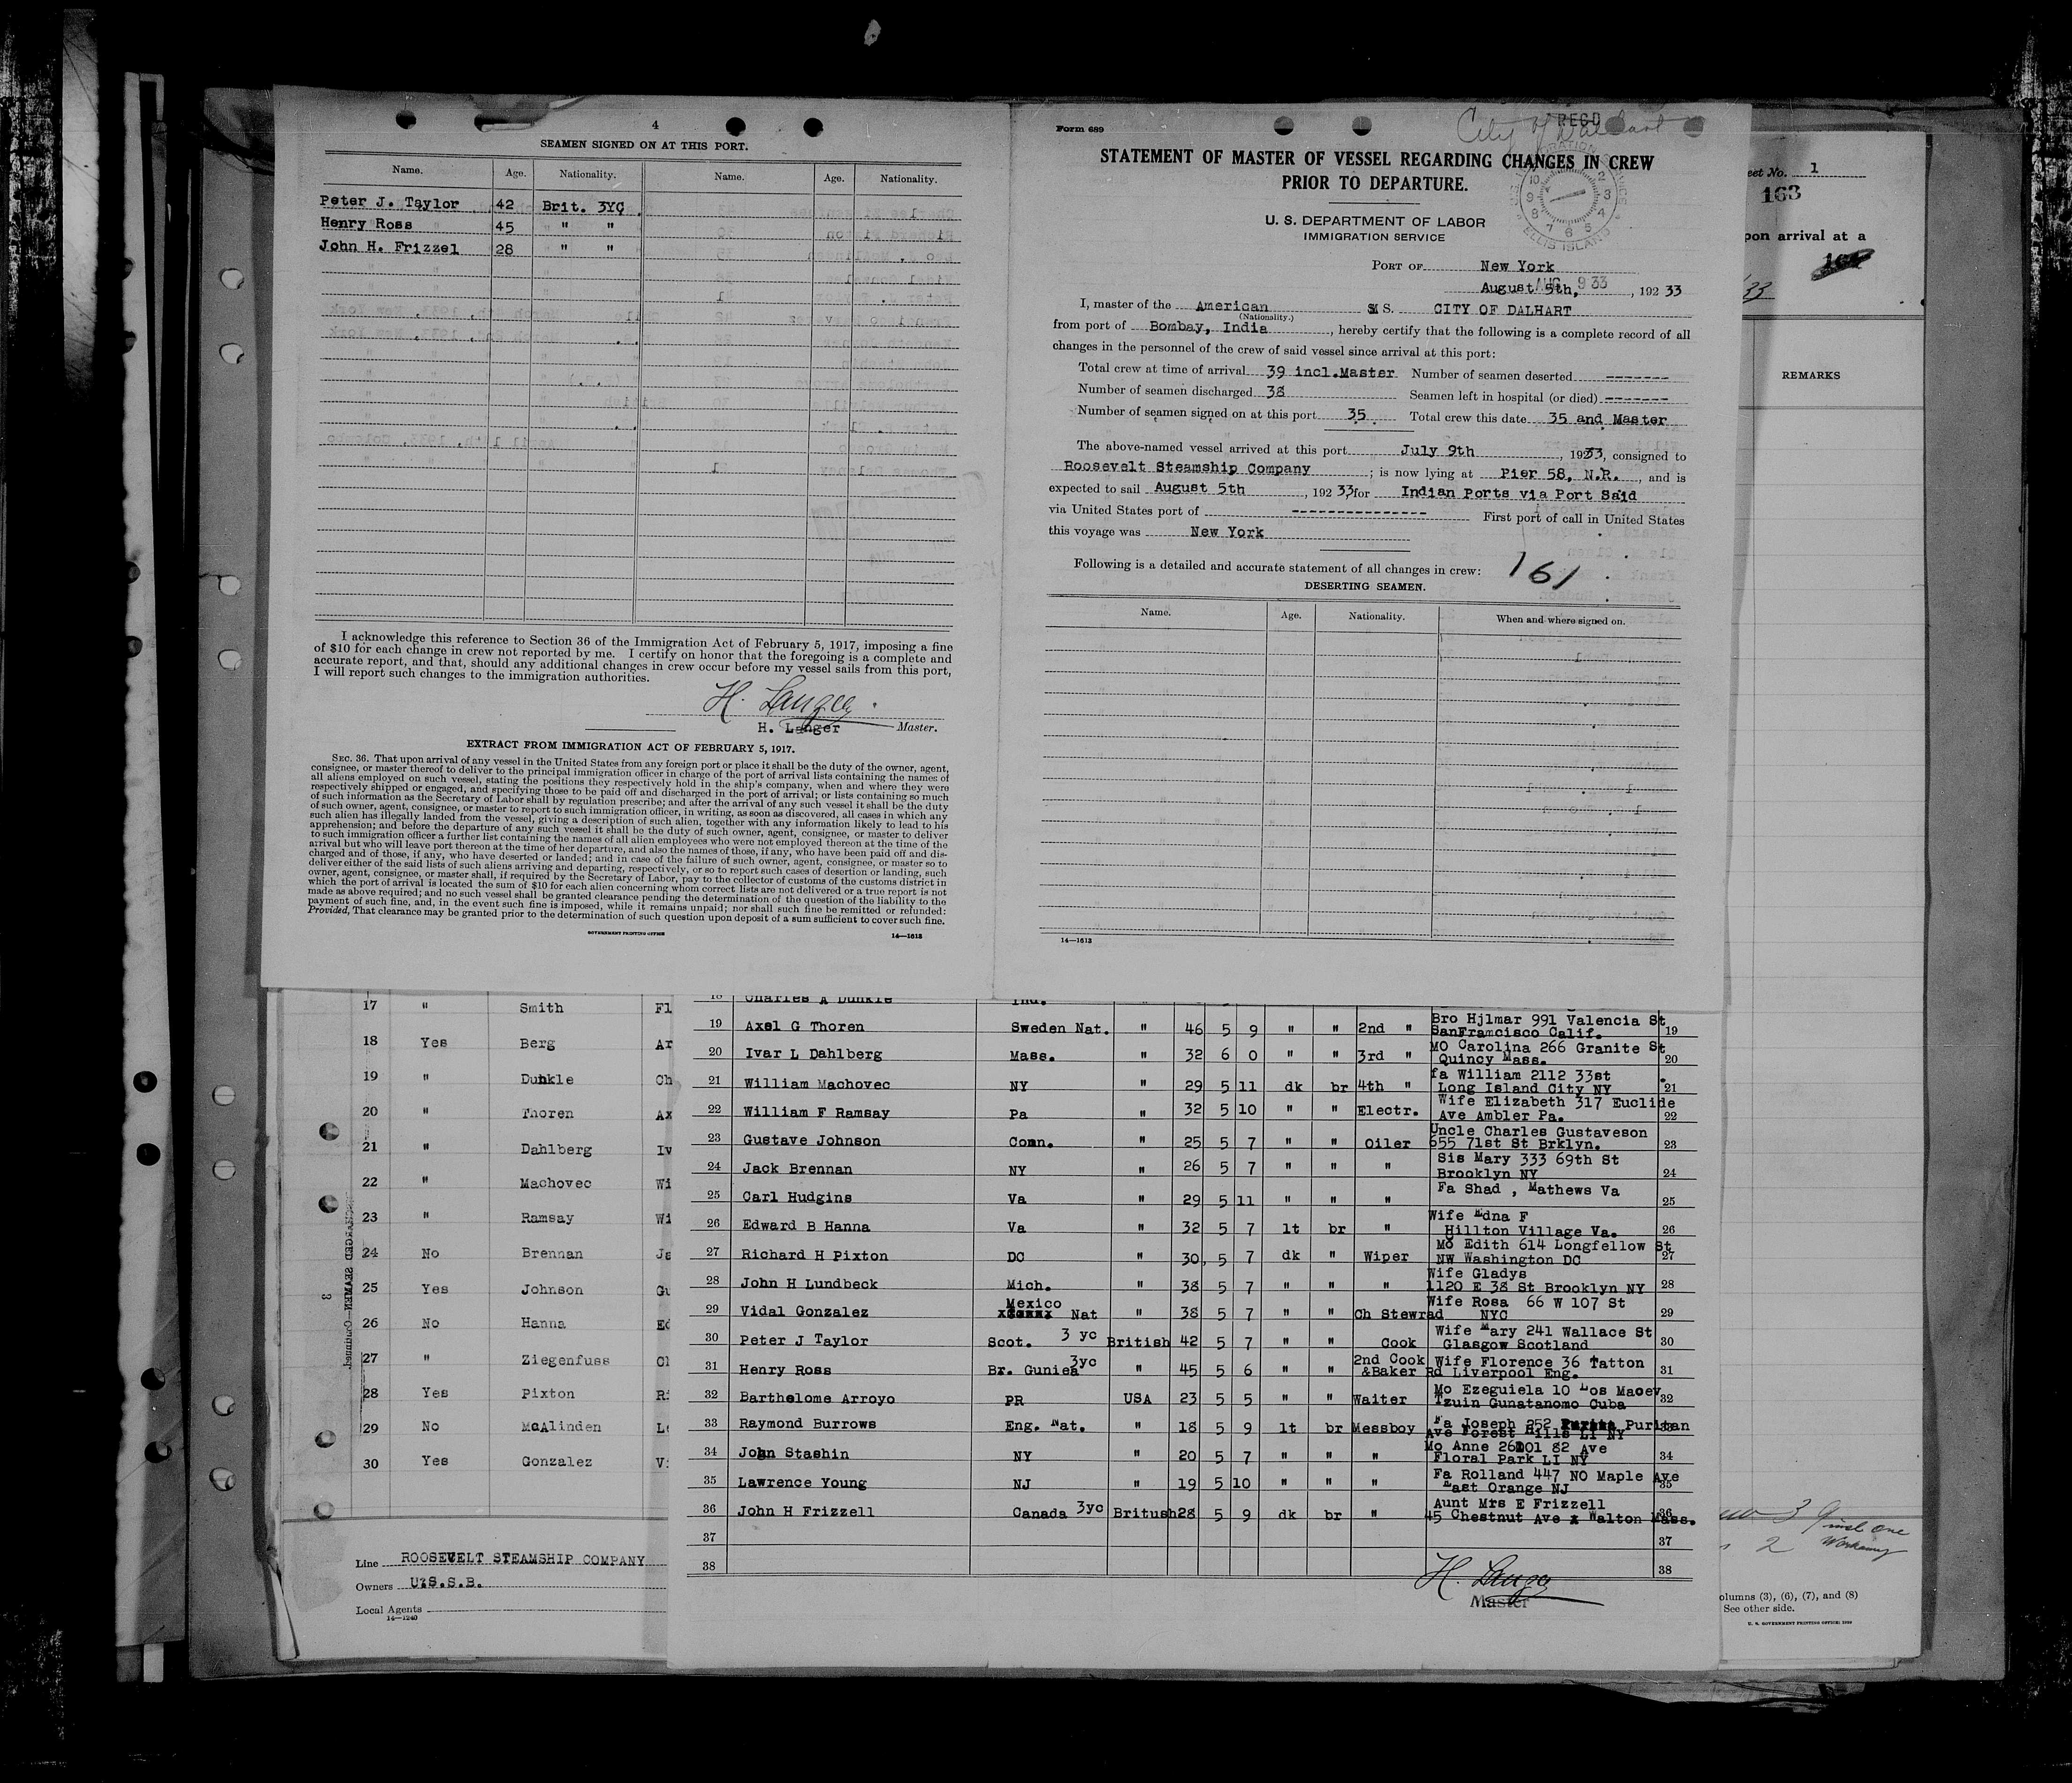 4
SEAMEN SIGNED ON AT THIS PORT.
Name. Age. Nationality. Name. Age. Nationality.
Peter J. Taylor 42 Brit. 3YC
Henry Ross 45 " "
John H. Frizzel 28 " "
I acknowledge this reference to Section 36 of the Immigration Act of February 5, 1917, imposing a fine
of $10 for each change in crew not reported by me. I certify on honor that the foregoing is a complete and
accurate report, and that, should any additional changes in crew occur before my vessel sails from this port,
I will report such changes to the immigration authorities.
H. Langer
H. Langer Master.
EXTRACT FROM IMMIGRATION ACT OF FEBRUARY 5, 1917.
SEC. 36. That upon arrival of any vessel in the United States from any foreign port or place it shall be the duty of the owner, agent,
consignee, or master thereof to deliver to the principal immigration officer in charge of the port of arrival lists containing the names of
all aliens employed on such vessel, stating the positions they respectively hold in the ship's company, when and where they were
respectively shipped or engaged, and specifying those to be paid off and discharged in the port of arrival; or lists containing so much
of such information as the Secretary of Labor shall by regulation prescribe; and after the arrival of any such vessel it shall be the duty
of such owner, agent, consignee, or master to report to such immigration officer, in writing, as soon as discovered, all cases in which any
such alien has illegally landed from the vessel, giving a description of such alien, together with any information likely to lead to his
apprehension; and before the departure of any such vessel it shall be the duty of such owner, agent, consignee, or master to deliver
to such immigration officer a further list containing the names of all alien employees who were not employed thereon at the time of the
arrival but who will leave port thereon at the time of her departure, and also the names of those, if any, who have been paid off and dis-
charged and of those, if any, who have deserted or landed; and in case of the failure of such owner, agent, consignee, or master so to
deliver either of the said lists of such aliens arriving and departing, respectively, or so to report such cases of desertion or landing, such
owner, agent, consignee, or master shall, if required by the Secretary of Labor, pay to the collector of customs of the customs district in
which the port of arrival is located the sum of $10 for each alien concerning whom correct lists are not delivered or a true report is not
made as above required; and no such vessel shall be granted clearance pending the determination of the question of the liability to the
payment of such fine, and, in the event such fine is imposed, while it remains unpaid; nor shall such fine be remitted or refunded:
Provided, That clearance may be granted prior to the determination of such question upon deposit of a sum sufficient to cover such fine.
GOVERNMENT PRINTING OFFICE 14—1613
Form 689
City of Dalhart
REGD
STATEMENT OF MASTER OF VESSEL REGARDING CHANGES IN CREW
PRIOR TO DEPARTURE.
U. S. DEPARTMENT OF LABOR
IMMIGRATION SERVICE
ELLIS ISLAND
PORT OF New York
AUG 9 33
August 5th, , 192 33
I, master of the American S. CITY OF DALHART
(Nationality.)
from port of Bombay, India , hereby certify that the following is a complete record of all
changes in the personnel of the crew of said vessel since arrival at this port:
Total crew at time of arrival 39 incl.Master Number of seamen deserted -------
Number of seamen discharged 38 Seamen left in hospital (or died) -------
Number of seamen signed on at this port 35 Total crew this date 35 and Master
The above-named vessel arrived at this port July 9th , 19233, consigned to
Roosevelt Steamship Company ; is now lying at Pier 58, N.R. , and is
expected to sail August 5th , 192 33 for Indian Ports via Port Said
via United States port of --------------- First port of call in United States
this voyage was New York
Following is a detailed and accurate statement of all changes in crew: 161
DESERTING SEAMEN.
Name. Age. Nationality. When and where signed on.
14—1613
eet No. 1
163
pon arrival at a
33
REMARKS
17 " Smith Fl
18 Yes Berg Ar
19 " Dunkle Ch
20 " Thoren Ax
21 " Dahlberg Iv
22 " Machovec Wi
23 " Ramsay Wi
24 No Brennan Ja
25 Yes Johnson Gu
26 No Hanna Ed
27 " Ziegenfuss Cl
28 Yes Pixton Ri
29 No McAlinden Le
30 Yes Gonzalez Vi
DISCHARGED SEAMEN—Continued.
3
Line ROOSEVELT STEAMSHIP COMPANY
Owners U.S.S.B.
Local Agents
14—1240
18 Charles A Dunkle Ind.
19 Axel G Thoren Sweden Nat. " 46 5 9 " " 2nd " Bro Hjlmar 991 Valencia St
SanFrancisco Calif. 19
20 Ivar L Dahlberg Mass. " 32 6 0 " " 3rd " MO Carolina 266 Granite St
Quincy Mass. 20
21 William Machovec NY " 29 5 11 dk br 4th " fa William 2112 33st
Long Island City NY 21
22 William F Ramsay Pa " 32 5 10 " " Electr. Wife Elizabeth 317 Euclide
Ave Ambler Pa. 22
23 Gustave Johnson Conn. " 25 5 7 " " Oiler Uncle Charles Gustaveson
655 71st St Brklyn. 23
24 Jack Brennan NY " 26 5 7 " " " Sis Mary 333 69th St
Brooklyn NY 24
25 Carl Hudgins Va " 29 5 11 " " " Fa Shad , Mathews Va 25
26 Edward B Hanna Va " 32 5 7 lt br " Wife Edna F
Hillton Village Va. 26
27 Richard H Pixton DC " 30 5 7 dk " Wiper Mo Edith 614 Longfellow St
NW Washington DC 27
28 John H Lundbeck Mich. " 38 5 7 " " " Wife Gladys
1120 E 38 St Brooklyn NY 28
29 Vidal Gonzalez Mexico Nat " 38 5 7 " " Ch Stewrad Wife Rosa 66 W 107 St
NYC 29
30 Peter J Taylor Scot. 3 yc British 42 5 7 " " Cook Wife Mary 241 Wallace St
Glasgow Scotland 30
31 Henry Ross Br. Guniea 3yc " 45 5 6 " " 2nd Cook &Baker Wife Florence 36 Tatton
Rd Liverpool Eng. 31
32 Barthelome Arroyo PR USA 23 5 5 " " Waiter Mo Ezeguiela 10 Los Macey
Tzuin Gunatanomo Cuba 32
33 Raymond Burrows Eng. Nat. " 18 5 9 lt br Messboy Fa Joseph 252 Puritan
Ave Forest Hills LI NY 33
34 John Stashin NY " 20 5 7 " " " Mo Anne 26101 82 Ave
Floral Park LI NY 34
35 Lawrence Young NJ " 19 5 10 " " " Fa Rolland 447 NO Maple Ave
East Orange NJ 35
36 John H Frizzell Canada 3yc Britush 28 5 9 dk br " Aunt Mrs E Frizzell
45 Chestnut Ave x Walton Mass. 36
37 37
38 38
H. Langer
Master
3
2
olumns (3), (6), (7), and (8)
See other side.
U. S. GOVERNMENT PRINTING OFFICE: